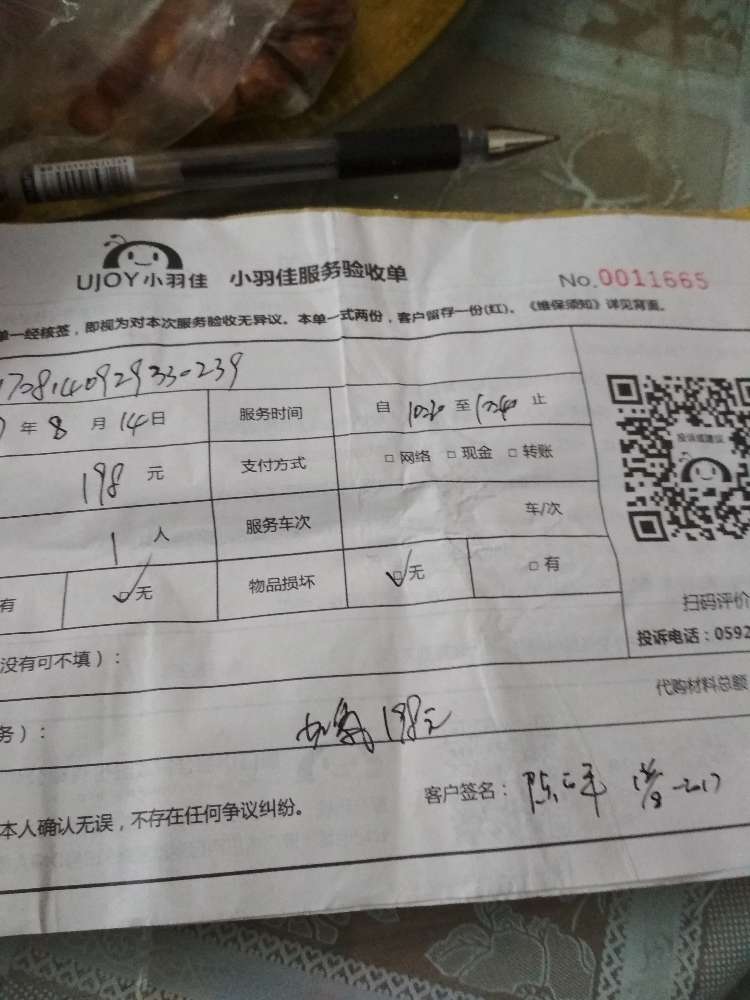 UJOY小羽佳 小羽佳服务验收单 No.0011665
单一经核签，即视为对本次服务验收无异议。本单一式两份，客户留存一份(红)。《维保须知》详见背面。
1708140929330239
年 8 月 14 日 服务时间 自 至 止
投诉或建议
198 元 支付方式 □ 网络 □ 现金 □ 转账
1 人 服务车次 车/次
有 ☑无 物品损坏 ☑无 □ 有
扫码评价
投诉电话：0592
没有可不填）：
代购材料总额
务）： 加氟 198元
本人确认无误，不存在任何争议纠纷。 客户签名： 14/8-2017